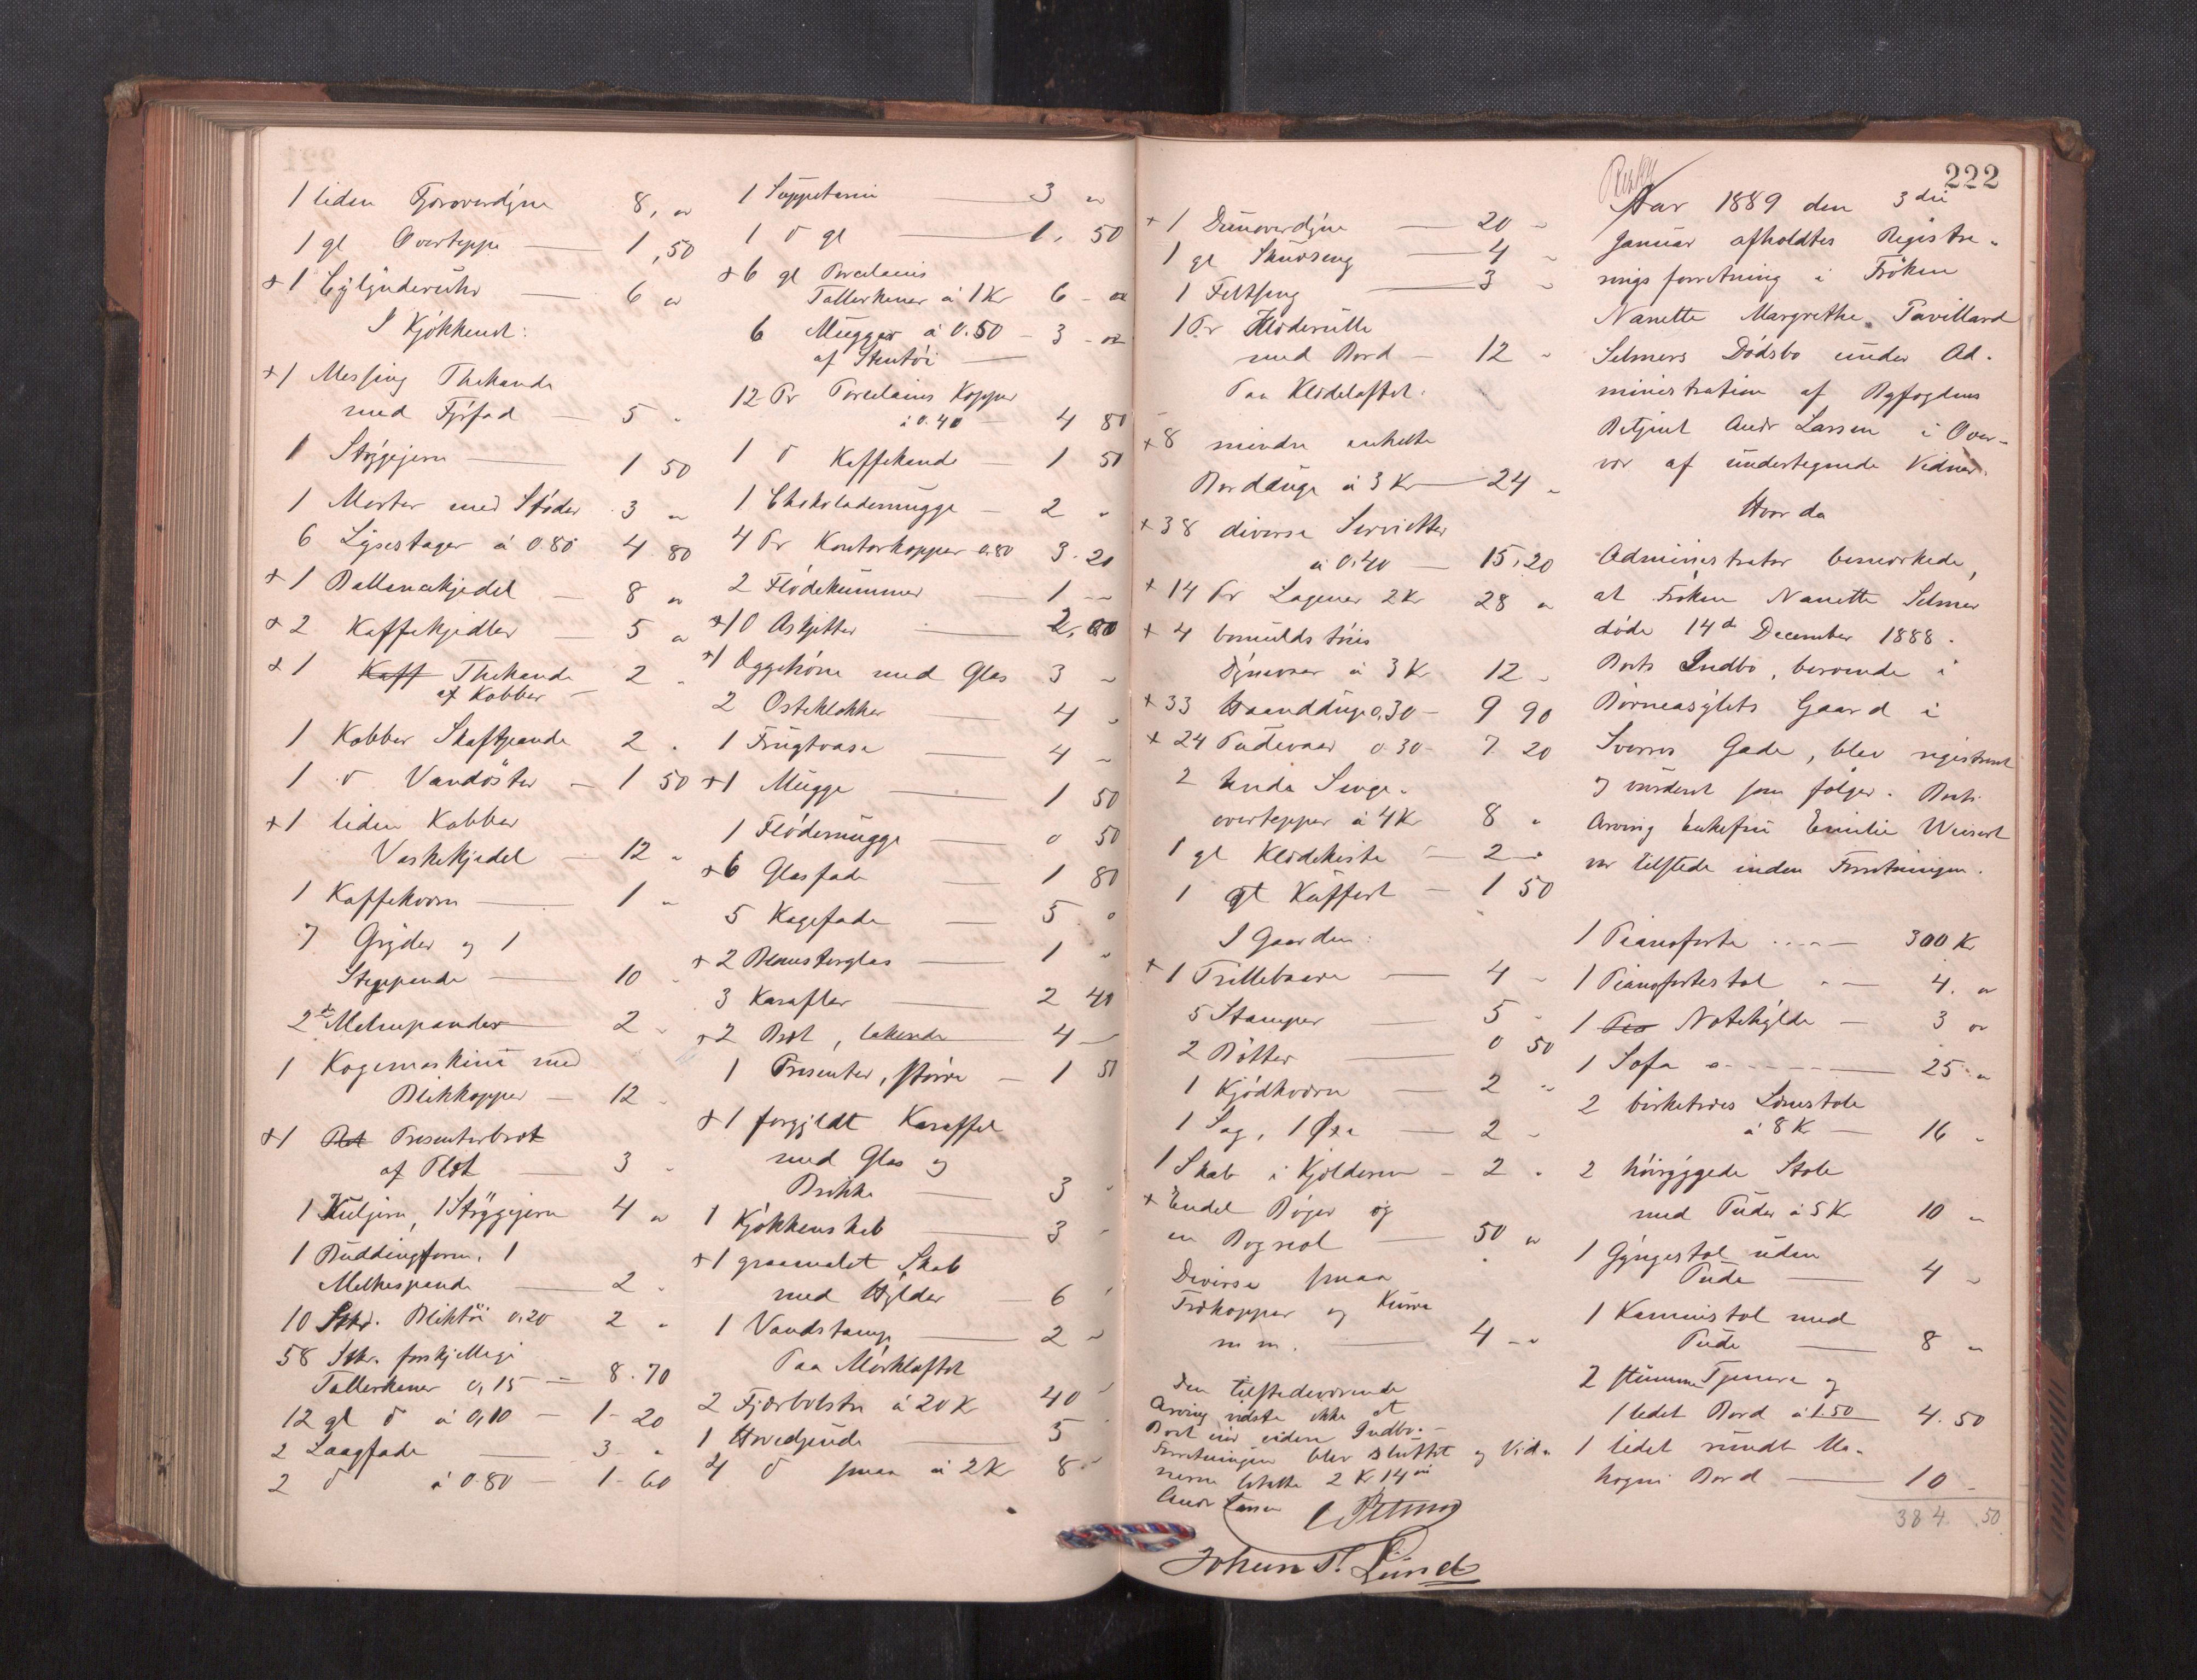 1 liden Fjæroverdyne 8, "
1 gl Overteppe — 1,50
+ 1 Cylynderuhr — 6 "
I Kjøkkenet:
+ 1 Messing Thekande
med Fyrfad — 5 "
1 Strygejern — 1 50
1 Morter med Støder 3 "
6 Lysestager á 0.80 4.80
+ 1 Ballancekjedel — 8 "
+ 2 Kaffekjedler — 5 "
+ 1 Kaff Thekande 2 "
af Kobber —
1 Kobber Skaftpande 2 "
1 d Vandøster — 1 50
+ 1 liden Kobber
Vaskekjedel — 12 "
1 Kaffekværn — 1 "
7 Gryder og 1
Stegepande — 10 "
2 Melnepander — 2 "
1 Kogemaskine med
Blikkopper — 12 "
+ 1 Presenterbret
af Plet — 3 "
1 Kuljern, 1 Strygejern 4 "
1 Buddingform, 1
Melkespand — 2 "
10 Stkr. Bliktøi 0.20 2 "
58 Stkr. forskjellige
Tallerkener 0,15 — 8.70
12 gl d á 0,10 — 1 - 20
2 Laagfade — 3 "
2 d á 0.80 — 1 - 60
1 Suppeterin — 3 "
1 d gl — 1. 50
+ 6 gl Porcelains
Tallerkener á 1 Kr 6 - "
6 Mugger á 0.50 — 3 - "
af Stentøi —
12 Pr Porcelains Kopper
á 0.40 — 4 80
1 d Kaffekande — 1 50
1 Chokolademugge — 2 "
4 Pr Kontorkopper 0.80 3.20
2 Flødekummer — 1 "
+ 10 Asjetter — 2,00
+ 1 Æggehøne med Glas 3 "
2 Osteklokker — 4 "
1 Frugtvase — 4 "
+ 1 Mugge — 1 50
1 Flødemugge — 0 50
+ 6 Glasfade — 1 80
5 Kagefade — 5 "
+ 2 Blomsterglas — 1 "
3 Karafler — 2 40
+ 2 Bret, lakerede — 4 "
1 Presenter, større — 1 50
+ 1 forgyldt Karaffel
med Glas og
Brikke — 3 "
1 Kjøkkenskab — 3 "
+ 1 graamalet Skab
med Hylder — 6 "
1 Vandstamp — 2 "
Paa Mørkloftet
2 Fjærbolstre á 20 Kr 40 "
1 Hovedpude — 5 "
4 d smaa á 2 Kr 8 "
+ 1 Dunoverdyne — 20 "
1 gl Skuvseng — 4 "
1 Feltseng — 3 "
1 Pr Klæderulle
med Bord — 12 "
Paa Klædeloftet:
+ 8 mindre enkelte
Borddúge á 3 Kr — 24 "
+ 38 diverse Servietter
á 0,40 — 15,20
+ 14 Pr Lagener 2 Kr 28 "
+ 4 bomuldstøis
Dynevaar á 3 Kr 12 "
+ 33 Haanddúge 0,30 — 9 90
+ 24 Pudevaar 0.30 — 7.20
2 hvide Senge-
overtepper á 4 Kr 8 "
1 gl Klædekiste — 2 "
1 gl Kuffert — 1 50
I Gaarden:
+ 1 Trillebaare — 4 "
5 Stamper — 5 "
2 Bøtter — 0 50
1 Kjødkværn — 2 "
1 Sag, 1 Øxe — 2 "
1 Skab i Kjølderen — 2 "
+ Endel Bøger og
en Bogreol — 50 "
Diverse smaa
Trækopper og Kurve
m m. — 4 "
Den tilstedeværende
Arving vidste ikke at
Boet eier videre Indbo. —
Forretningen blev sluttet og Vid-
nerne betalte 2 Kr 14 øre
Andr Lassen
Johan T. Lund
222
Aar 1889 den 3die
Januar afholdtes Registre-
ringsforretning i Frøken
Nanette Margrethe Pavillard
Selmers Dødsbo under Ad-
ministration af Byfogdens
Betjent Andr Lassen i Over-
vær af undertegnede Vidner.
Hvorda
Administrator bemærkede,
at Frøken Nanette Selmer
døde 14de December 1888.
Boets Indbo, beroende i
Børneasylets Gaard i
Sverres Gade, blev registreret
og vurderet som følger. Boets
Arving Enkefru Emilie Weinert
var tilstede under Forretningen.
1 Pianoforte — 300 Kr
1 Pianofortestol — 4. "
1 Pia Notehylde — 3 "
1 Sofa — 25 "
2 birketræes Lænestole
á 8 K — 16 "
2 høiryggede Stole
med Puder á 5 Kr 10 "
1 Gyngestol uden
Pude — 4 "
1 Kaminstol med
Pude — 8 "
2 stumme Tjenere og
1 lidet Bord á 1.50 4.50
1 lidet rundt Ma-
hogni Bord — 10 "
384.50